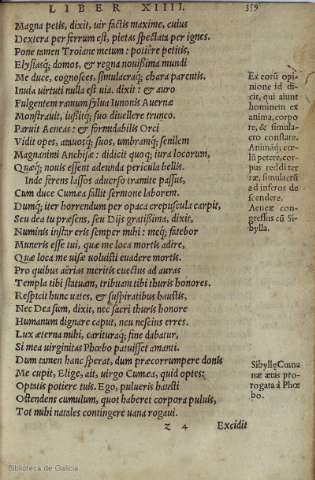 LIBER XIIII. 359
Magna petis, dixit, uir factis maxime, cuius
Dextera per ferrum est, pietas spectata per ignes.
Pone tamen Troiane metum: potiêre petitis,
Elysiasq; domos, & regna nouissima mundi
Me duce, cognosces, simulacraq; chara parentis.
Inuia uirtuti nulla est uia. dixit: & auro
Fulgentem ramum sylua Iunonis Auernæ
Monstrauit, iussitq; suo diuellere trunco.
Paruit Aeneas: & formidabilis Orci
Vidit opes, atauosq; suos, umbramq; senilem
Magnanimi Anchisæ: didicit quoq; iura locorum,
Quæq; nouis essent adeunda pericula bellis.
Inde ferens lassos aduerso tramite passus,
Cum duce Cumæa fallit sermone laborem.
Dumq; iter horrendum per opaca crepuscula carpit,
Seu dea tu præsens, seu Dijs gratissima, dixit,
Numinis instar eris semper mihi: meq; fatebor
Muneris esse tui, quæ me loca mortis adire,
Quæ loca me uisæ uoluisti euadere mortis.
Pro quibus aërias meritis euectus ad auras
Templa tibi statuam, tribuam tibi thuris honores.
Respicit hunc uates, & suspiratibus haustis,
Nec Dea sum, dixit, nec sacri thuris honore
Humanum dignare caput, neu nescius erres.
Lux æterna mihi, carituraq; fine dabatur,
Si mea uirginitas Phœbo patuisset amanti.
Dum tamen hanc sperat, dum præcorrumpere donis
Me cupit, Elige, ait, uirgo Cumæa, quid optes:
Optatis potiere tuis. Ego, pulueris hausti
Ostendens cumulum, quot haberet corpora puluis,
Tot mihi natales contingere uana rogaui.
z 4 Excidit
Ex eorū opi
nione id di-
cit, qui aiunt
hominem ex
anima, corpo
re, & simula-
cro constare.
Animāq; cœ-
lū petere, cor-
pus reddi ter
ræ, simulacrū
ad inferos de
scendere.
Aeneæ con-
gressus cū Si-
bylla.
Sibyllę Cumæ
næ ætas pro-
rogata à Phœ
bo.
Biblioteca de Galicia